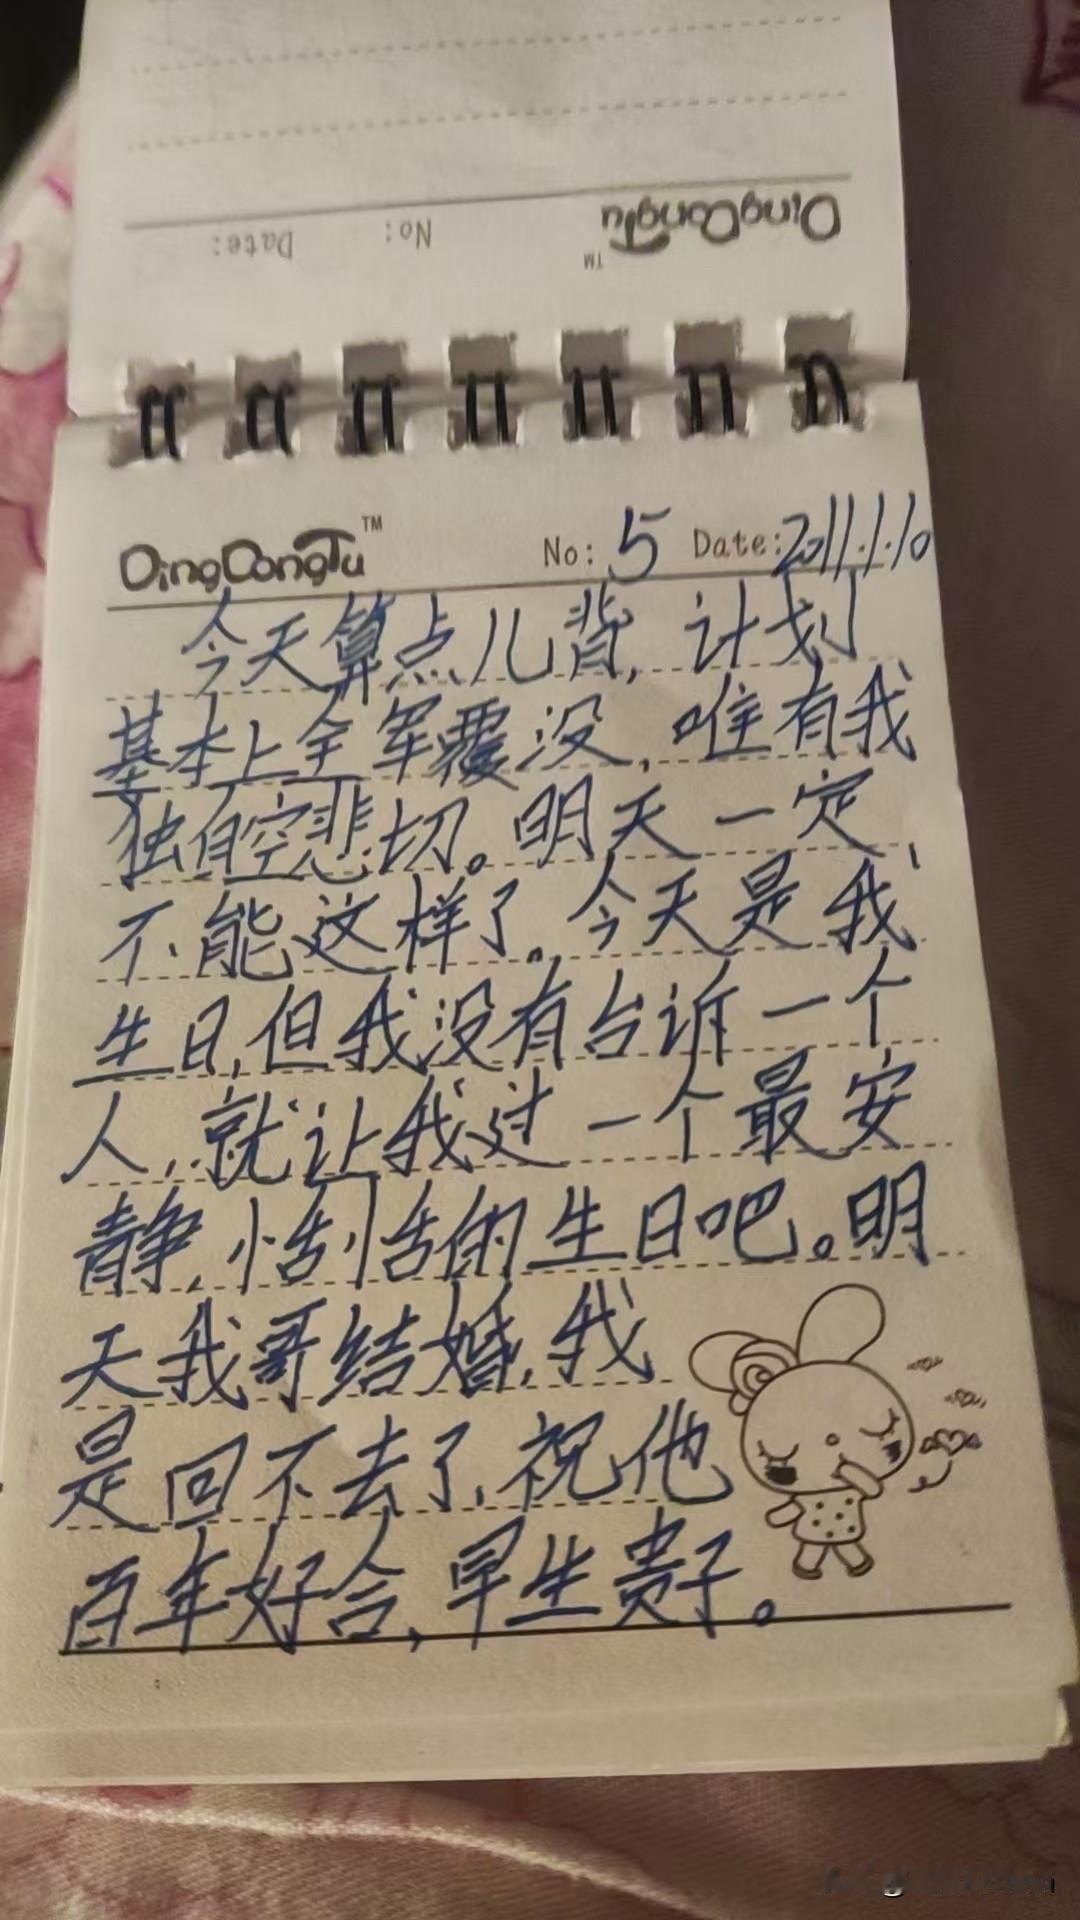 DingDongTu™
No: Date:
DingDongTu™ No: 5 Date: 2011.1.10
今天算点儿背,计划
基本上全军覆没,唯有我
独自空悲切。明天一定
不能这样了。今天是我
生日,但我没有告诉一个
人,就让我过一个最安
静,
的生日吧。明
天我哥结婚,我
是回不去了,祝他
百年好合,早生贵子。